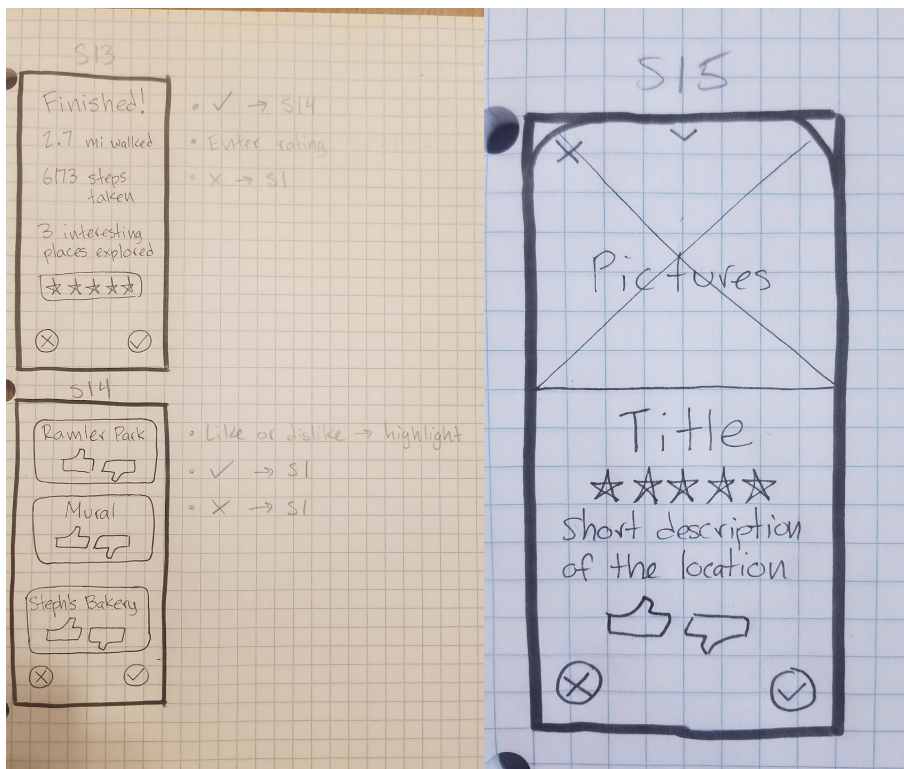 S13
Finished!
2.7 mi walked
6173 steps
taken
3 interesting
places explored
• ✓ → S14
• Enter rating
• X → S1
S14
Ramler Park
Mural
Steph's Bakery
• Like or dislike → highlight
• ✓ → S1
• X → S1
S15
Pictures
Title
short description
of the location